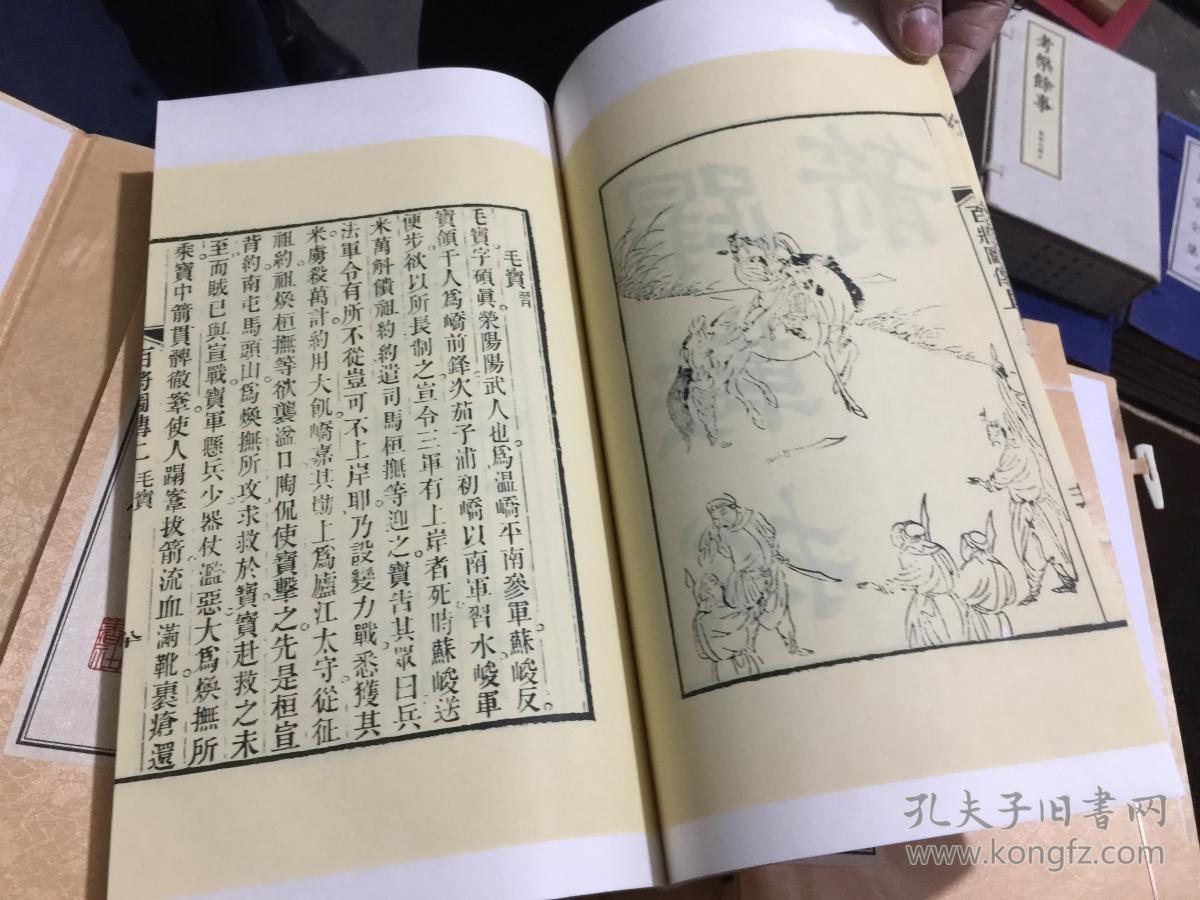 毛寶晉
毛寶字碩眞滎陽陽武人也爲温嶠平南參軍蘇峻反。
寶領千人爲嶠前鋒次茄子浦初嶠以南軍習水峻軍
便步欲以所長制之宣令三軍有上岸者死時蘇峻送
米萬斛饋祖約約遣司馬桓撫等迎之寶告其眾曰兵
法軍令有所不從豈可不上岸耶乃設變力戰悉獲其
米虜殺萬計約用大飢嶠嘉其勛上爲廬江太守從征
祖約祖煥桓撫等欲襲湓口陶侃使寶擊之先是桓宣
背約南屯馬頭山爲煥撫所攻求救於寶寶赴救之未
至而賊已與宣戰寶軍懸兵少器仗濫惡大爲煥撫所
乘寶中箭貫髀徹鞌使人蹋鞌拔箭流血滿靴裹瘡還
百將圖傳上 毛寶 八
百將圖傳上
考槃餘事
孔夫子旧书网
www.kongfz.com